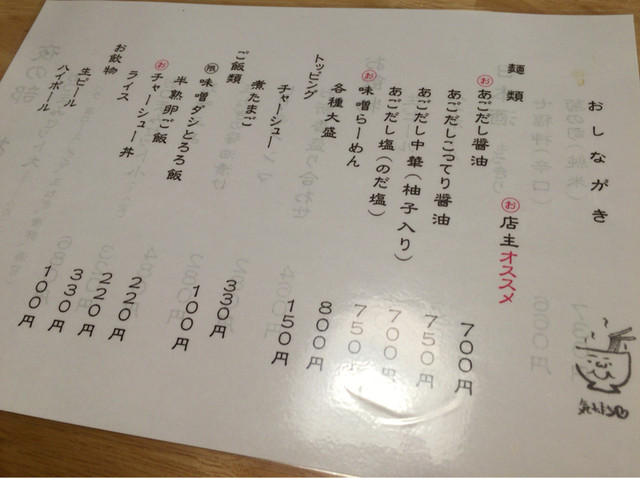 おしながき
お 店主オススメ
麺類
お あごだし醤油 700円
あごだしこってり醤油 750円
あごだし中華(柚子入り) 700円
あごだし塩(のだ塩) 750円
お 味噌らーめん 800円
各種大盛 150円
トッピング
チャーシュー 330円
煮たまご 100円
ご飯類
限 味噌ダシとろろ飯 220円
半熟卵ご飯 220円
お チャーシュー丼 330円
ライス 100円
お飲物
生ビール
ハイボール